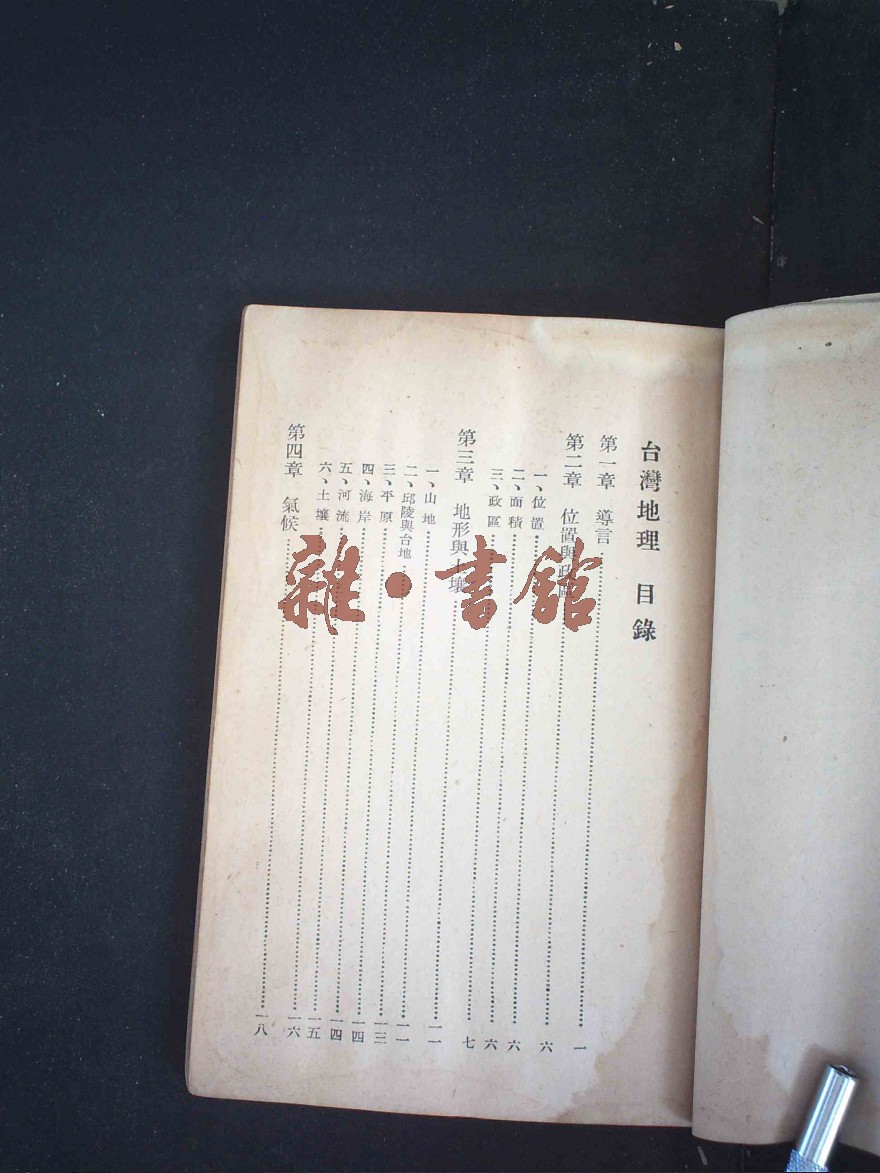 台灣地理 目錄
第一章 導言……一
第二章 位置與政區……六
一、位置……六
二、面積……六
三、政區……七
第三章 地形與土壤……一一
一、山地……一一
二、邱陵與台地……一三
三、平原……一四
四、海岸……一四
五、河流……一五
六、土壤……一六
第四章 氣候……一八
雜·書館